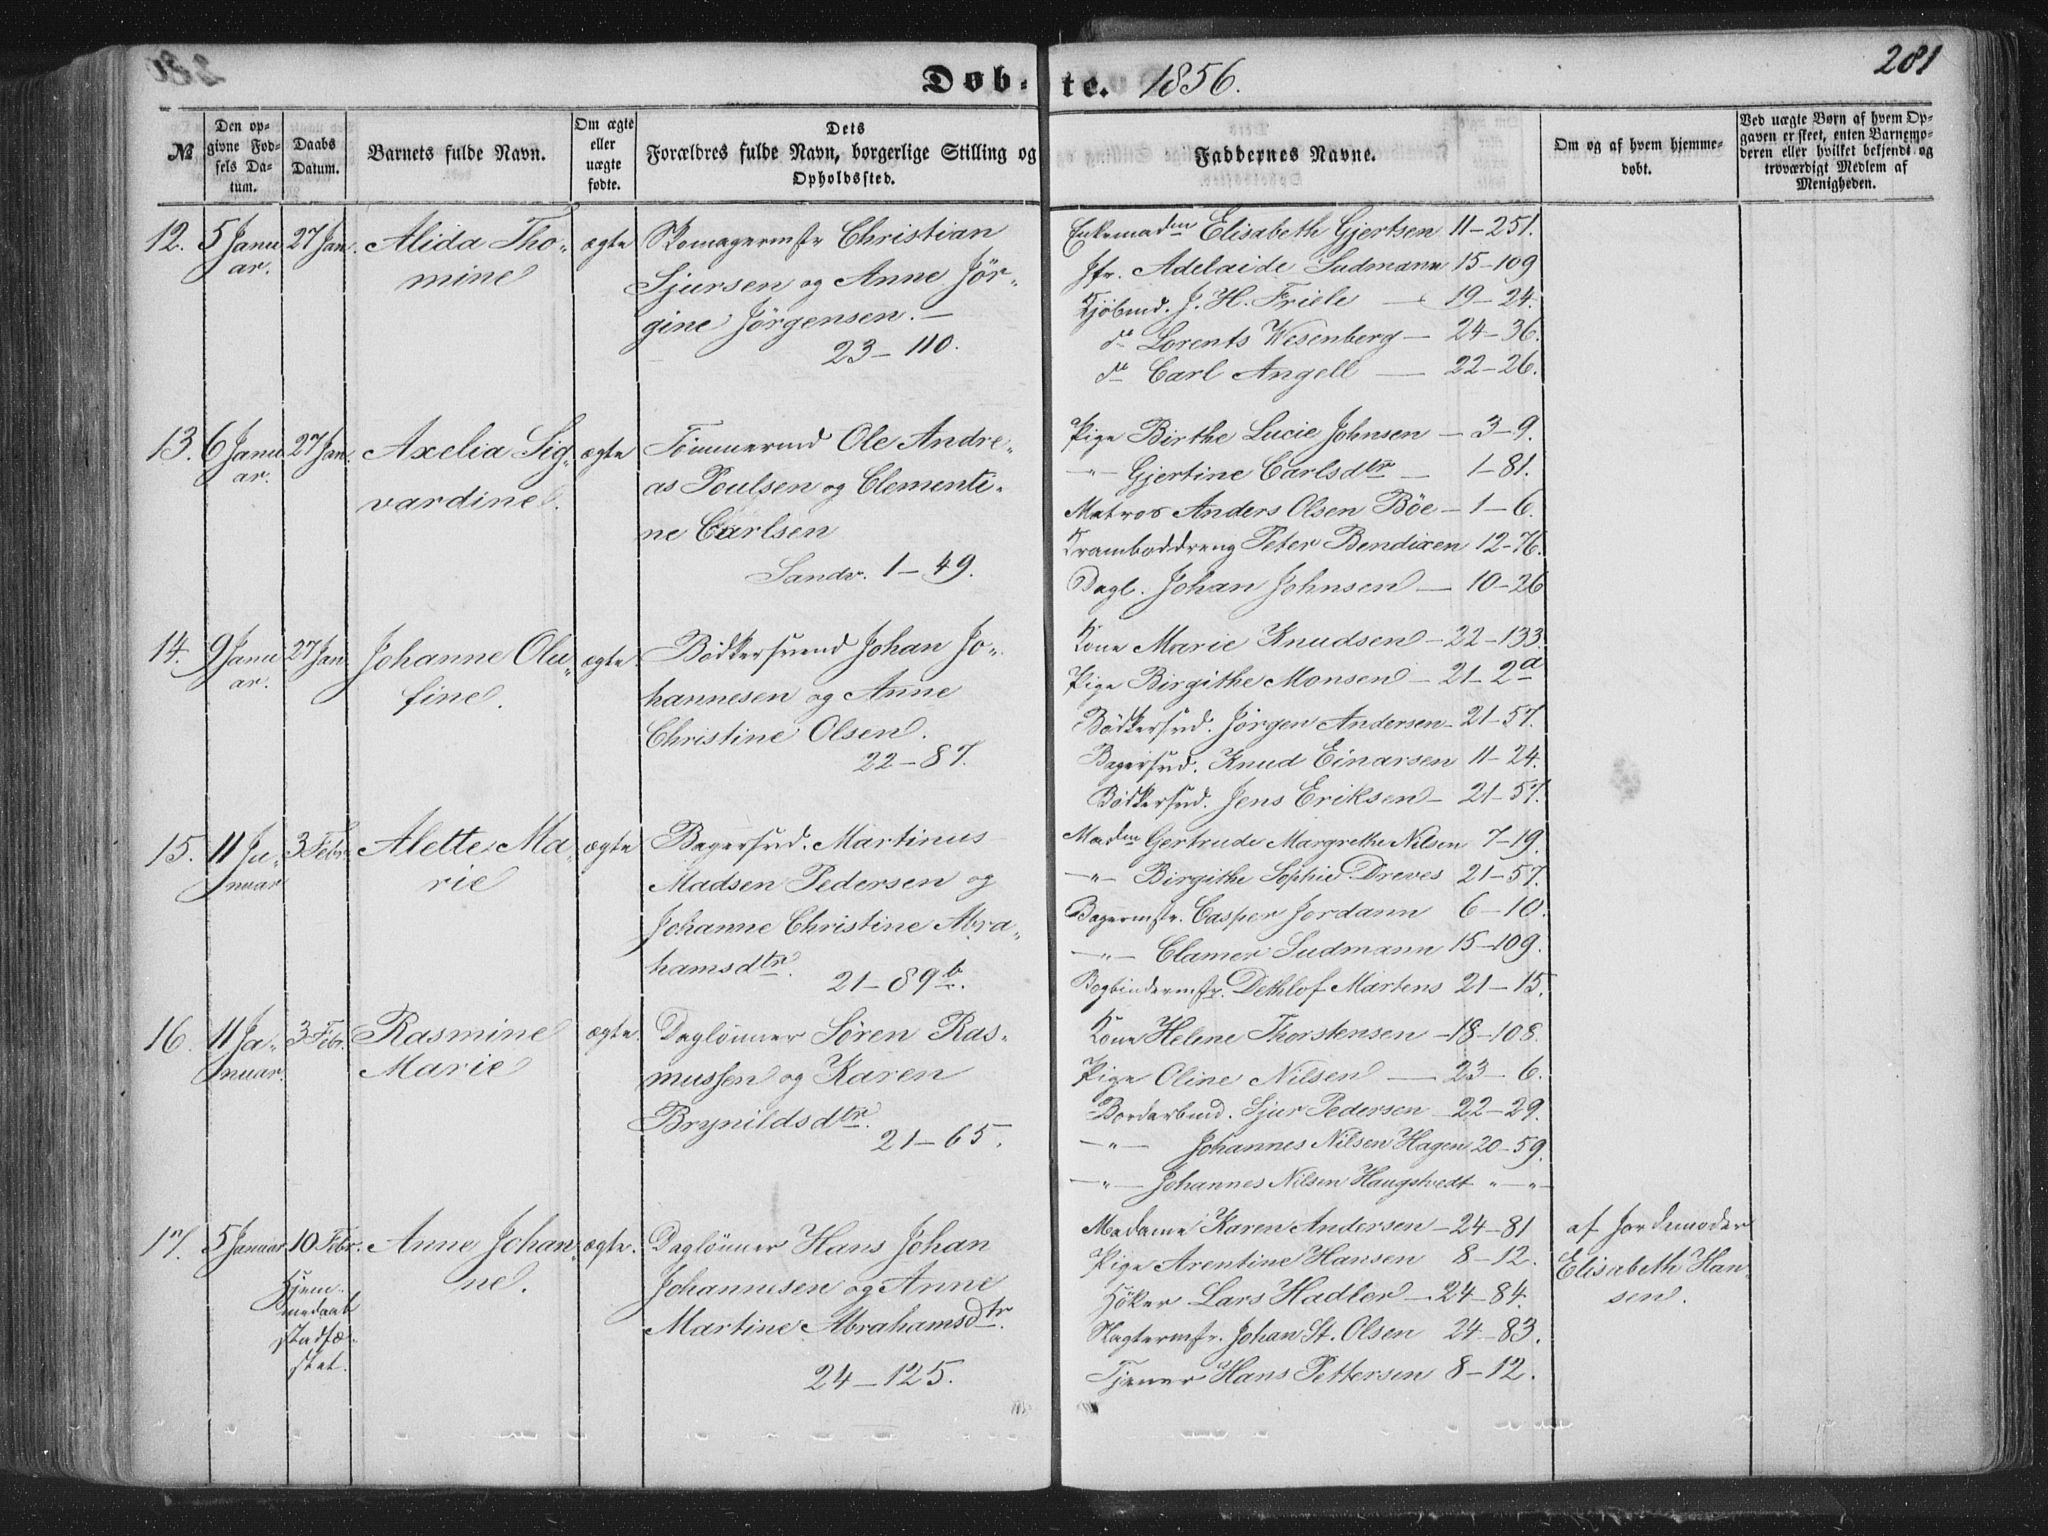 281
Døb-te. 1856.
№
Den op-
givne Fød-
sels Da-
tum.
Daabs
Datum.
Barnets fulde Navn.
Om ægte
eller
uægte
fødte.
Dets
Forældres fulde Navn, borgerlige Stilling og
Opholdssted.
Faddernes Navne.
Om og af hvem hjemme-
døbt.
Ved uægte Børn af hvem Op-
gaven er skeet, enten Barnemo-
deren eller hvilket bekjendt og
troværdigt Medlem af
Menigheden.
12. 5 Janu 27 Jan. Alida Tho- ægte Skomagermstr Christian
ar. mine Sjursen og Anne Jør-
gine Jörgensen. —
23 – 110.
Enkemadm Elisabeth Gjertsen 11–251.
Jfr. Adelaide Sudmann 15–109
Kjöbmd. J. H. Friele — 19–24.
do Lorents Wesenberg — 24–36.
do Carl Angell — 22–26.
13. 6 Janu 27 Jan. Axelia Sig- ægte Tömmermd Ole Andre-
ar. vardine. as Poulsen og Clementi-
ne Carlsen
Sandv. 1–49.
Pige Birthe Lucie Johnsen — 3–9.
–"– Gjertine Carlsdtr — 1–81.
Matros Anders Olsen Böe — 1–6.
Kramboddreng Peter Bendixen 12–76.
Dagl. Johan Johnsen — 10–26
14. 9 Janu 27 Jan Johanne Olu- ægte. Bödkersvend Johan Jo-
ar. fine. hannesen og Anne
Christine Olsen.
22–87.
Kone Marie Knudsen – 22–133.
Pige Birgithe Monsen – 21–2d
Bödkersvd. Jörgen Andersen – 21–57.
Bagersvd. Knud Einarsen 11–24.
Bödkersvd. Jens Eriksen – 21–57.
15. 11 Ja- 3 Febr. Alette Ma- ægte Bagersvd. Martinus
nuar rie Madsen Pedersen og
Johanne Christine Abra-
hamsdtr. 21–89b.
Madm Gertrude Margrethe Nilsen 7–19.
–"– Birgithe Sophie Dreves 21–57.
Bagermstr. Casper Jordann 6–10.
–"– Clamer Sudmann 15–109.
Bogbindermstr. Dethlof Martens 21–15.
16. 11 Ja- 3 Febr. Rasmine ægte. Daglönner Sören Ras-
nuar. Marie mussen og Karen
Brynildsdtr.
21–65.
Kone Helene Thorstensen – 18–108.
Pige Oline Nilsen — 23–6.
Bordarbmd. Sjur Pedersen – 22–29.
–"– Johannes Nilsen Hagen 20–59.
–"– Johannes Nilsen Haugstvedt "–"–
17. 5 Januar 10 Febr. Anne Johan- ægte. Daglönner Hans Johan
Hjem- ne. Johannesen og Anne
medaab Martine Abrahamsdtr.
stadfæ-
stet.
24–125.
Madame Karen Andersen – 24–81
Pige Arentine Hansen 8–12.
Höker Lars Hadler – 24–84.
Vagtermstr. Johan St. Olsen 24–83.
Tjener Hans Pettersen 8–12.
af Jordemoder
Elisabeth Han-
sen.